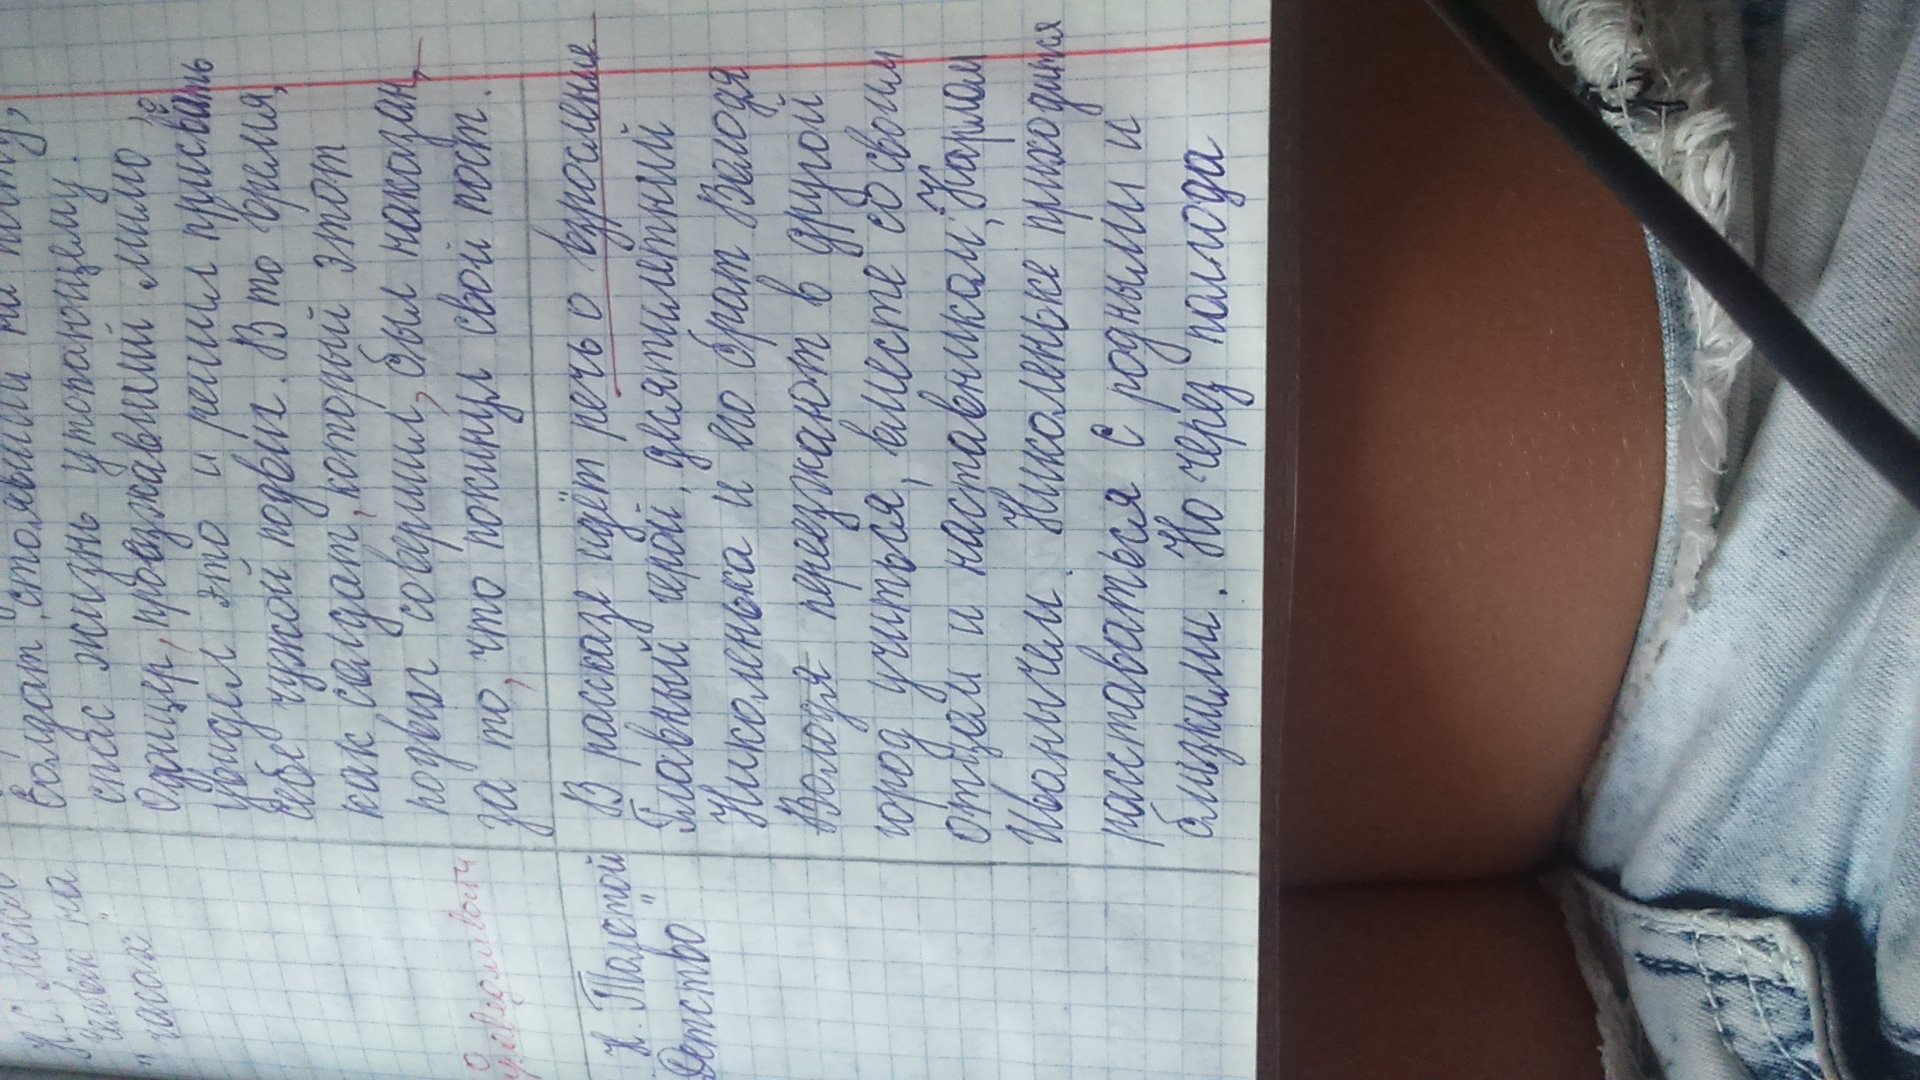 Н.С. Лесков
"Человек на
часах"
Солдат, стоявший на посту,
спас жизнь утопающему.
Офицер, проезжавший мимо,
увидел это и решил присвоить
себе чужой подвиг. В то время,
как солдат, который этот
подвиг совершил, был наказан,
за то, что покинул свой пост.
Н. Толстой
"Детство"
В рассказе идёт речь о взрослении.
Главный герой, десятилетний
Николенька и его брат Володя
Володя переезжают в другой
город учиться, вместе со своим
отцом и наставником, Карлом
Иванычем. Николеньке приходится
расставаться с родными и
близкими. Но через полгода